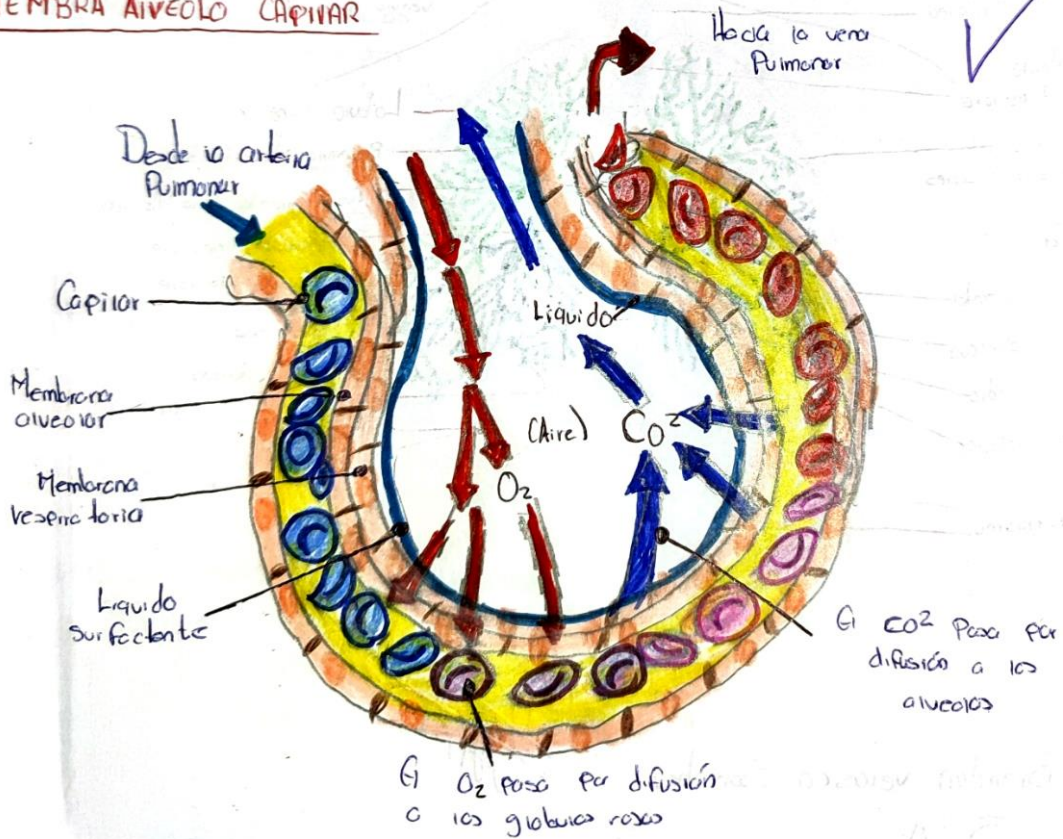 MEMBRA ALVEOLO CAPILAR
Hacia la vena
Pulmonar
Desde la arteria
Pulmonar
Capilar
Líquido
Membrana
alveolar
(Aire)
CO²
Membrana
respiratoria
O₂
Líquido
surfactante
El CO² Pasa por
difusión a los
alveolos
El O₂ pasa por difusión
a los globulos rojos